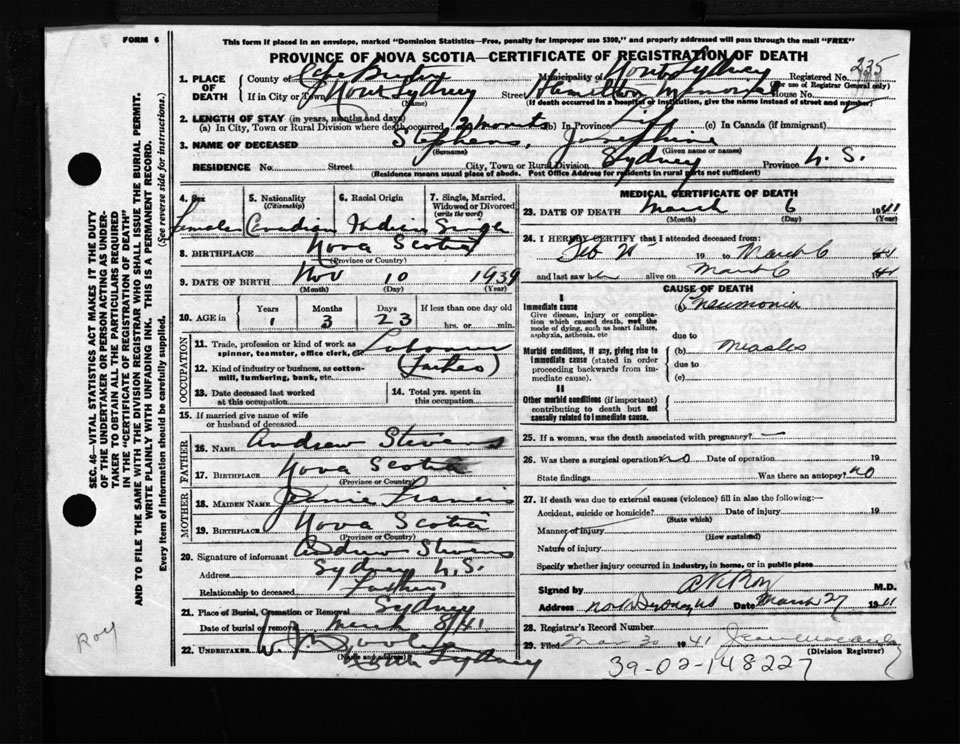 FORM 6
This form if placed in an envelope, marked "Dominion Statistics—Free, penalty for improper use $300," and properly addressed will pass through the mail "FREE"
PROVINCE OF NOVA SCOTIA—CERTIFICATE OF REGISTRATION OF DEATH
1. PLACE OF DEATH
County of Cape Breton Municipality of North Sydney Registered No. 235
(For use of Registrar General only)
If in City or Town North Sydney Street Hamilton Memorial House No.
(Name) (If death occurred in a hospital or institution, give the name instead of street and number)
2. LENGTH OF STAY (in years, months and days)
(a) In City, Town or Rural Division where death occurred 2 months (b) In Province Life (c) In Canada (if immigrant)
3. NAME OF DECEASED Stephens, Josephine
(Surname) (Given name or names)
RESIDENCE No. Street City, Town or Rural Division Sydney Province N. S.
(Residence means usual place of abode. Post Office Address for residents in rural parts not sufficient)
4. Sex Female
5. Nationality (Citizenship) Canadian
6. Racial Origin Indian
7. Single, Married, Widowed or Divorced (write the word) Single
8. BIRTHPLACE Nova Scotia
(Province or Country)
9. DATE OF BIRTH Nov 10 1939
(Month) (Day) (Year)
10. AGE in Years 1 Months 3 Days 23 If less than one day old hrs. or min.
OCCUPATION
11. Trade, profession or kind of work as spinner, teamster, office clerk, Labourer
12. Kind of industry or business, as cotton-mill, lumbering, bank, etc. (Father)
13. Date deceased last worked at this occupation
14. Total yrs. spent in this occupation
15. If married give name of wife or husband of deceased
FATHER
16. NAME Andrew Stevens
17. BIRTHPLACE Nova Scotia
(Province or Country)
MOTHER
18. MAIDEN NAME Jennie Francis
19. BIRTHPLACE Nova Scotia
(Province or Country)
20. Signature of informant Andrew Stevens
Address Sydney N.S.
Relationship to deceased Father
21. Place of Burial, Cremation or Removal Sydney
Date of burial or removal March 8/41
22. UNDERTAKER W. J.
(Name and address)
North Sydney
MEDICAL CERTIFICATE OF DEATH
23. DATE OF DEATH March 6 1941
(Month) (Day) (Year)
24. I HEREBY CERTIFY that I attended deceased from:
Feb 19 to March 6 41
and last saw her alive on March 6 41
CAUSE OF DEATH
I
Immediate cause
Give disease, injury or complication which caused death, not the mode of dying, such as heart failure, asphyxia, asthenia, etc
(a) Pneumonia
due to
Morbid conditions, if any, giving rise to immediate cause (stated in order proceeding backwards from immediate cause).
(b) Measles
due to
(c)
II
Other morbid conditions (if important) contributing to death but not causally related to immediate cause.
25. If a woman, was the death associated with pregnancy? —
26. Was there a surgical operation? NO Date of operation 19
State findings Was there an autopsy? NO
27. If death was due to external causes (violence) fill in also the following:—
Accident, suicide or homicide? Date of injury 19
(State which)
Manner of injury
(How sustained)
Nature of injury
Specify whether injury occurred in industry, in home, or in public place
Signed by Roy M.D.
Address Date March 27 1941
28. Registrar's Record Number
29. Filed Mar 30 1941 Jean
(Division Registrar)
39-02-148227
SEC. 46—VITAL STATISTICS ACT MAKES IT THE DUTY
OF THE UNDERTAKER OR PERSON ACTING AS UNDER-
TAKER TO OBTAIN ALL THE PARTICULARS REQUIRED
IN THE "CERTIFICATE OF REGISTRATION OF DEATH"
AND TO FILE THE SAME WITH THE DIVISION REGISTRAR WHO SHALL ISSUE THE BURIAL PERMIT.
WRITE PLAINLY WITH UNFADING INK. THIS IS A PERMANENT RECORD.
Every item of information should be carefully supplied. (See reverse side for instructions.)
Roy